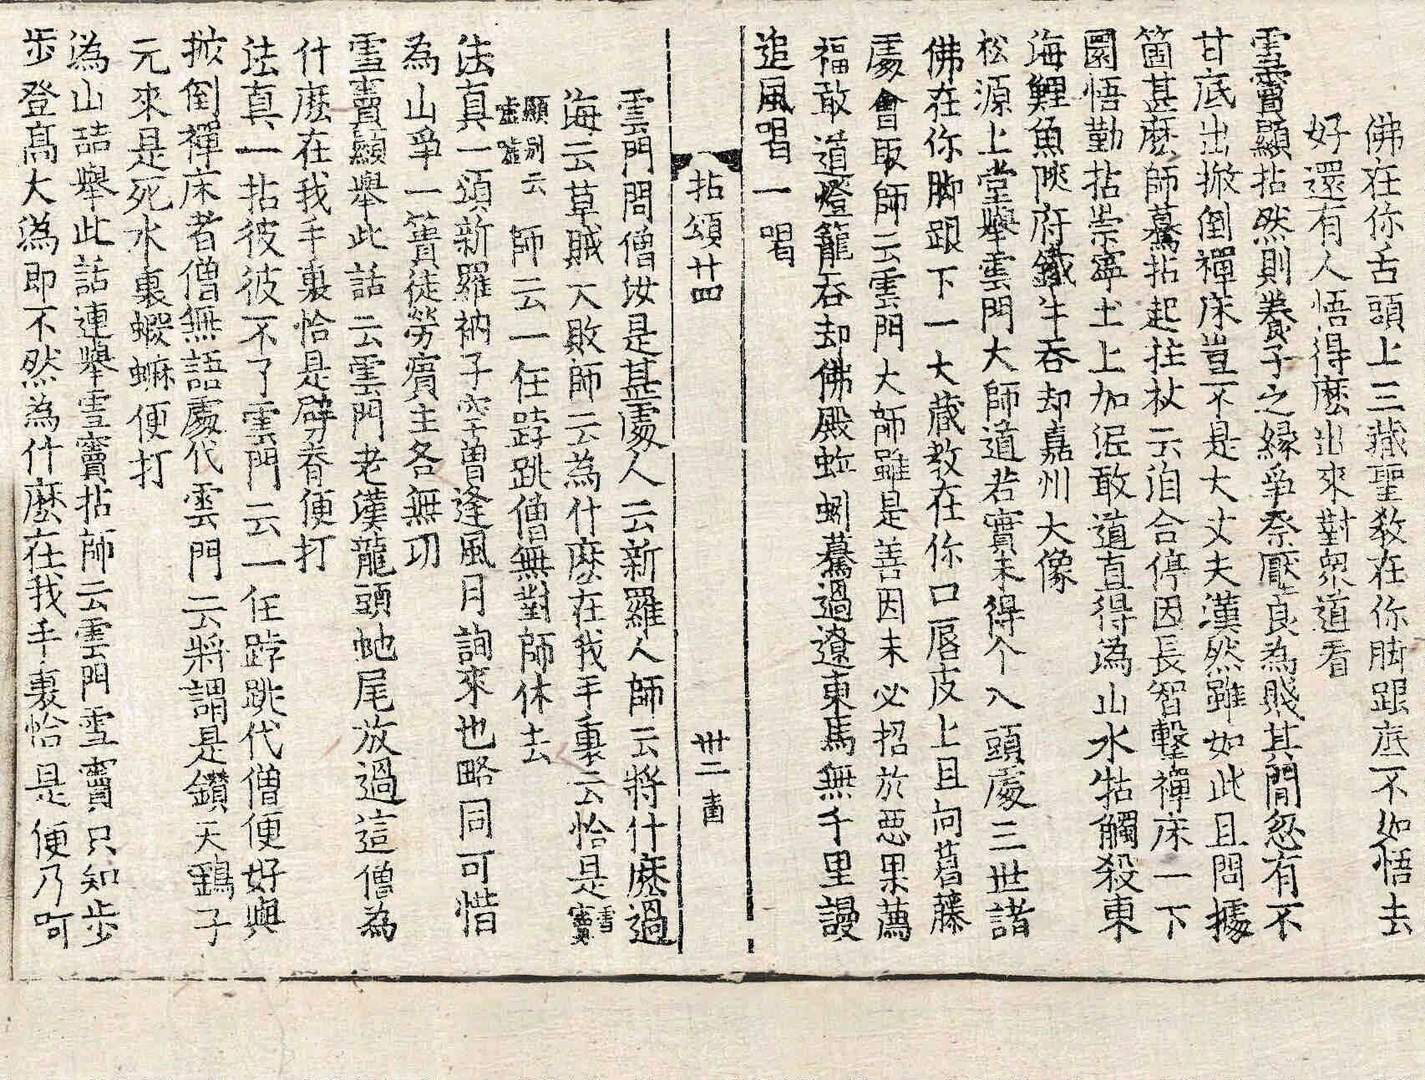 佛在你舌頭上三藏聖教在你脚跟底不如悟去
好還有人悟得麽出來對衆道看
雪竇顯拈然則養子之緣爭柰壓良為賤其閒忽有不
甘底出掀倒禪床豈不是大丈夫漢然雖如此且問據
箇甚麽師驀拈起拄杖云洎合停因長智擊禪床一下
圜悟勤拈崇寧土上加泥敢道直得溈山水牯觸殺東
海鯉魚陝府鐵牛呑却嘉州大像
松源上堂舉雲門大師道若實未得个入頭處三世諸
佛在你脚跟下一大藏教在你口唇皮上且向葛藤
處會取師云雲門大師雖是善因未必招於惡果薦
福敢道燈籠呑却佛殿蚯蚓驀過遼東馬無千里謾
追風喝一喝
拈頌廿四
卅二
雲門問僧汝是甚處人云新羅人師云將什麽過
海云草賊大敗師云為什麽在我手裏云恰是雪竇
顯別云噓噓師云一任𨁝跳僧無對師休去
法真一頌新羅衲子字曽逢風月詢來也略同可惜
為山爭一簣徒勞賓主各無功
雪竇顯舉此話云雲門老漢龍頭虵尾放過這僧為
什麽在我手裏恰是劈脊便打
法真一拈彼彼不了雲門云一任𨁝跳代僧便好與
掀倒禪床者僧無語處代雲門云將謂是鑽天鷂子
元來是死水裏蝦䗫便打
溈山喆舉此話連舉雪竇拈師云雲門雪竇只知步
步登高大溈即不然為什麽在我手裏恰是便乃呵